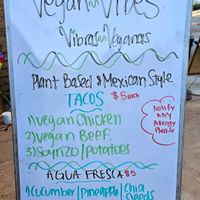 Vegan Vibes
Vibras Veganas
Plant Based & Mexican Style
TACOS $5 each
1) Vegan Chicken
2) Vegan Beef
3) Soyrizo/Potatoes
Notify
ANY
Allergy
Please
AGUA FRESCA $5
1) Cucumber/Pineapple/Chia
Seeds